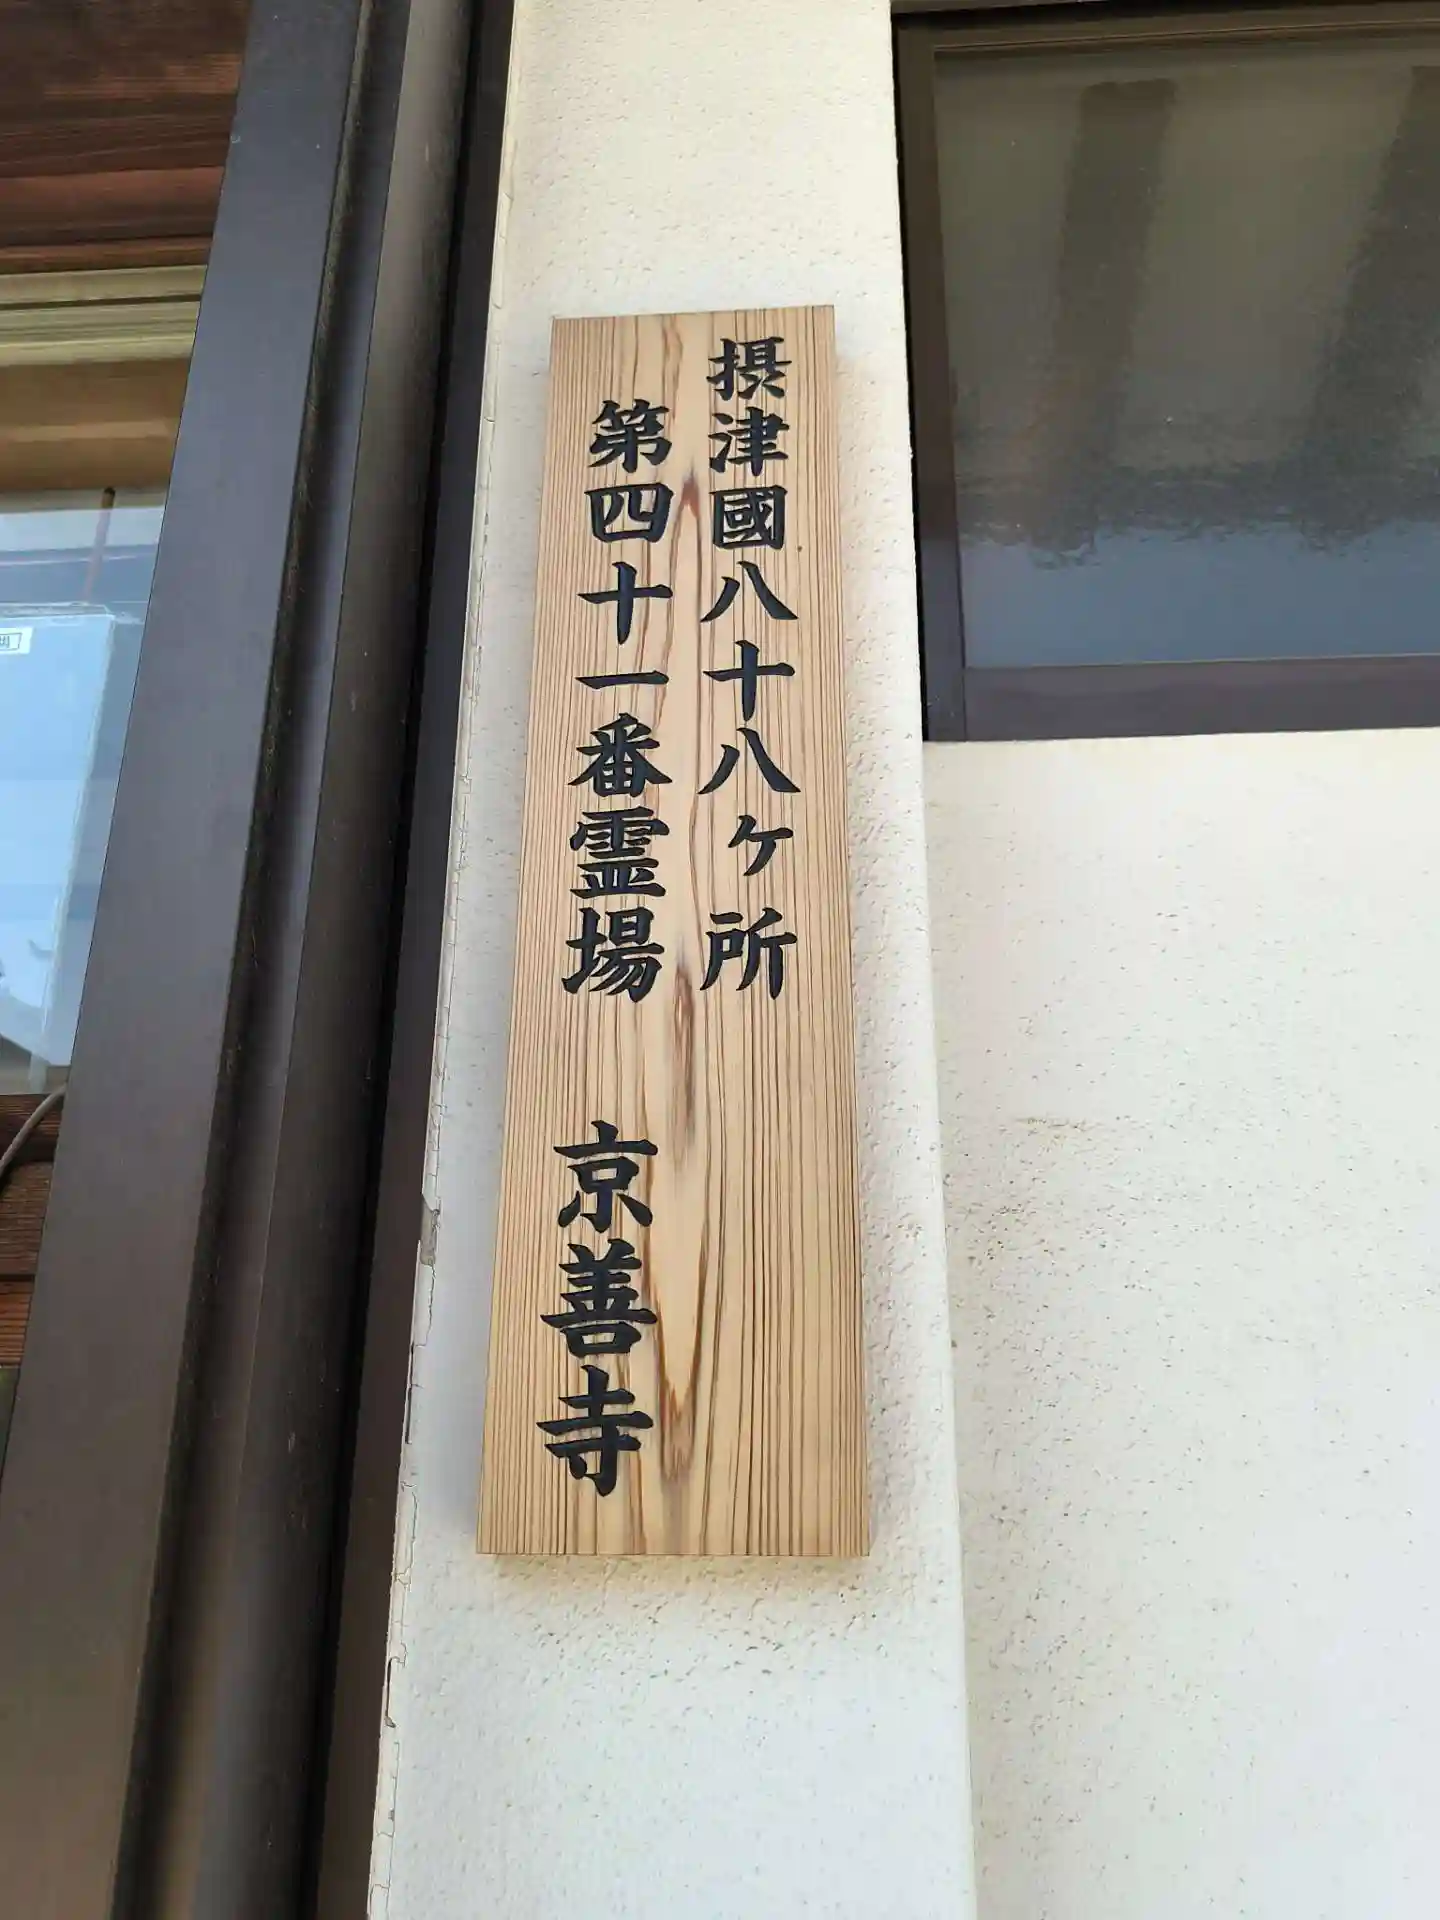 摂津國八十八ヶ所
第四十一番霊場 京善寺